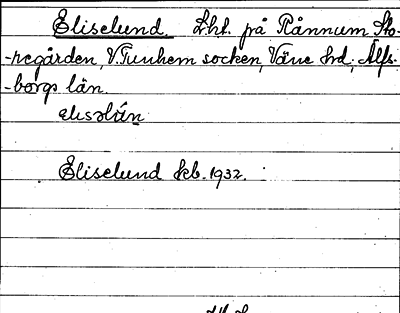 Eliselund. Lht. på Rånnum Sto-
-regården, V. Tunhem socken, Väne hd, Älfs-
-borgs län.
elisəlún
Eliselund kb. 1932.